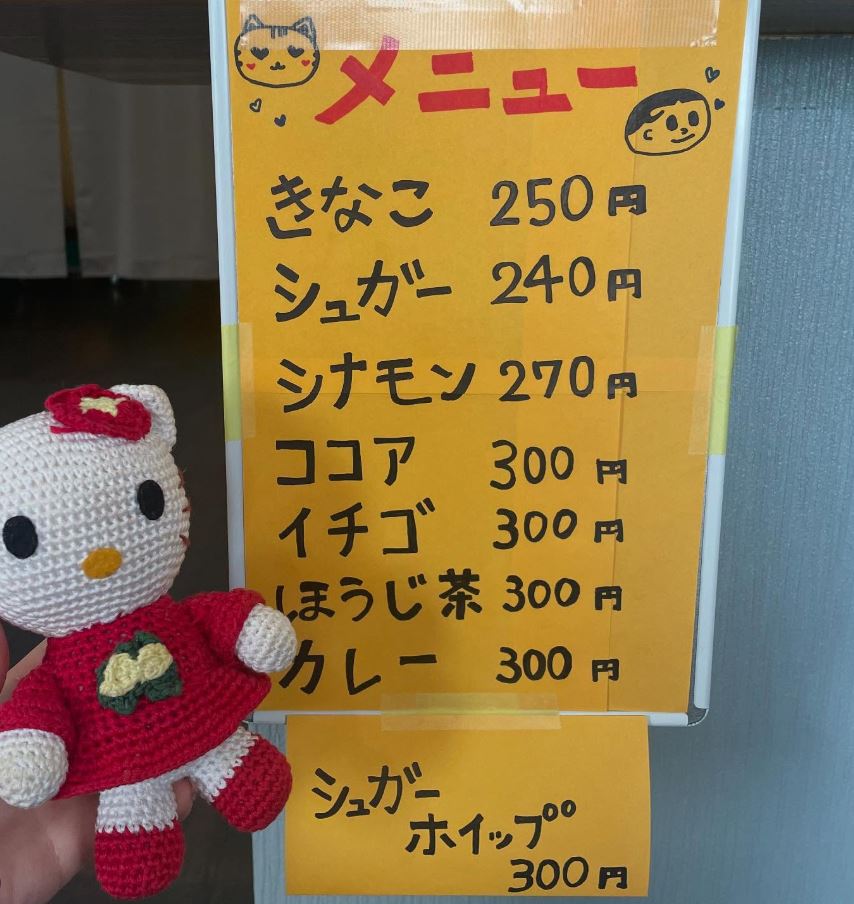 メニュー
きなこ 250円
シュガー 240円
シナモン 270円
ココア 300円
イチゴ 300円
ほうじ茶 300円
カレー 300円
シュガー
ホイップ
300円